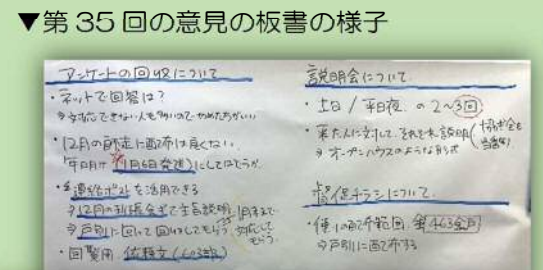 ▼第 35 回の意見の板書の様子
アンケートの回収について
・ネットで回答は？
→対応できない人も多いのでやめた方がいい
・12月の師走に配布は良くない。
年明け 1月6日発送 にしてはどうか。
・連絡ポストを活用できる
→12月の 会で 説明
→戸別に回って回収してもらう
1月末まで
対応して
もらう
・回覧用 依頼文(603部)
説明会について
・土日／平日夜 の2〜3回
・来た人に対して、それぞれ説明
→オープンハウスのような形式
督促チラシについて
・ 配布範囲 全463全戸
→戸別に配布する